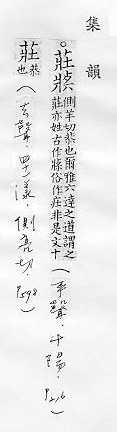 集韻
。莊 側羊切恭也爾雅六達之道謂之
莊亦姓古作俗作庄非是文十
(平聲.十陽. P216)
莊 恭也
(去聲.四十一漾.側亮切. P598)